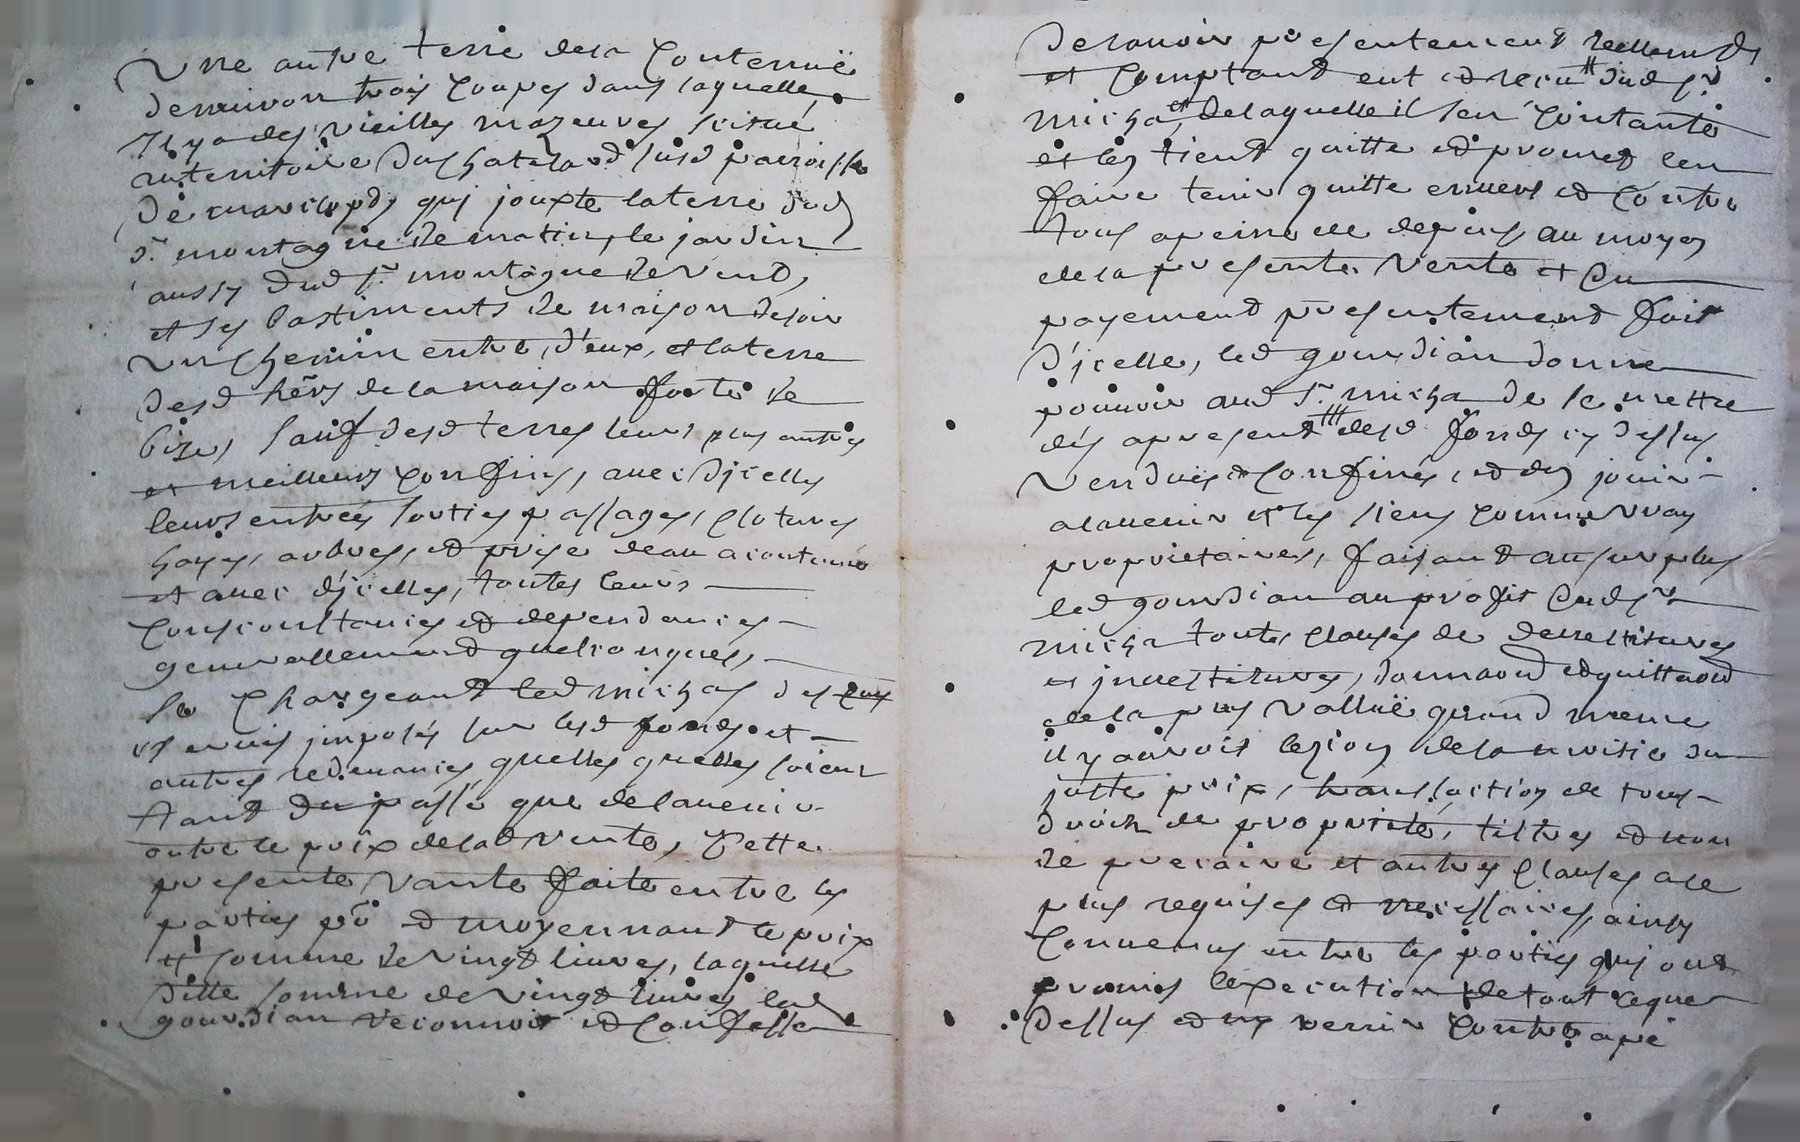 Une autre terre de la Contenuë
denuiron trois Coupes dans laquelle
Il y a des vieilles mazeures scitué
au territoire du Chatelard susd paroisse
De qui jouxte la terre dud
Sr montagne de matin, le jardin
aussy dud Sr montagne de vent,
et les bastiments de maison de soir
Un Chemin entre d'eux, et la terre
Desd hers de la maison forte de
bize, sauf desd terres leurs plus autres
et meilleurs Confins, auec Djcelles
leurs entrées sorties passages, Clotures
hayes, arbres, et prise deau acoutumé
et auec djcelles, toutes leurs
Consconstances et dependances
generallement quelconques,
se Chargeant led michas des
seruis jmposés sur lesd fonds et
autres redeuances quelles quelles soient
tant du passé que de lauenir
outre le prix de lad vente, Cette
presente Vante faite entre les
parties et moyennant le prix
et somme de vingt liures, laquelle
ditte somme de vingt liures led
gourdian reconnoit et Confesse
De lauoir presentement reellement
et Comptant eut et receu dud Sr
micha, et de laquelle il sen Contante
et les tient quitte et promet len
faire tenir quitte enuers et Contre
tous a peine de depens au moyen
de la presente Vente et Du
payement presentement fait
D'jcelle, led gourdian donne
pouuoir aud Sr micha de se mettre
dés apresent desd fonds cy dessus
Venduës et Confinés, et den jouir
a lauenir et les siens Comme vray
proprietaires, faisant au surplus
led gourdian au profit dud Sr
micha toutes Clauses de deuestitures
et jnuestitures, donnant et quittant
de la plus Valluë quand meme
il y auroit lezion de la moitie du
juste prix, translaction de tous
droits de proprieté, tiltres et nom
de precaire et autres Clauses a ce
plus requises et necessaires, ainsy
Conuenus entre les parties qui ont
promis lexecution de tout ce que
Dessus et ny venir Contre a pe